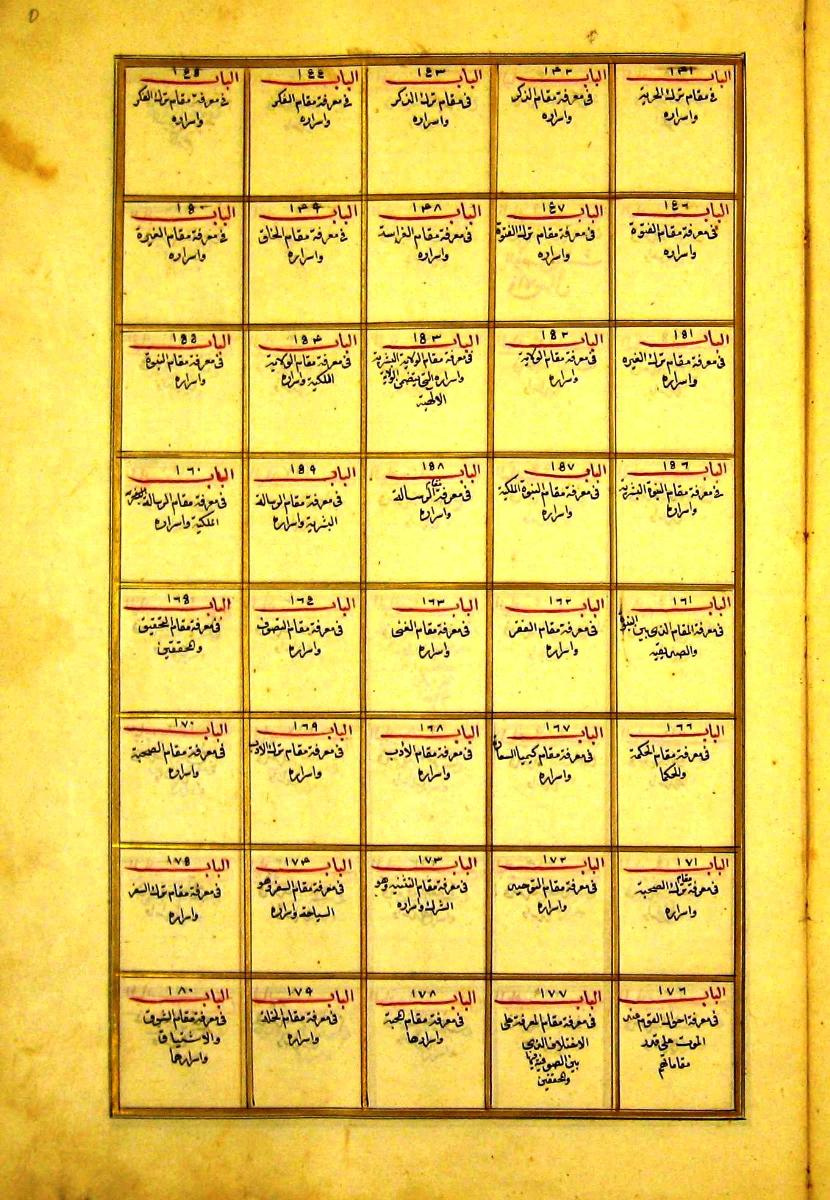 الباب ١٤١
في مقام ترك الحرية
واسراره
الباب ١٤٢
في معرفة مقام الذكر
واسراره
الباب ١٤٣
في مقام ترك الذكر
واسراره
الباب ١٤٤
في معرفة مقام الفكر
واسراره
الباب ١٤٥
في معرفة مقام ترك الفكر
واسراره
الباب ١٤٦
في معرفة مقام الفتوة
واسراره
الباب ١٤٧
في معرفة مقام ترك الفتوة
واسراره
الباب ١٤٨
في معرفة مقام الفراسة
واسراره
الباب ١٤٩
في معرفة مقام الخلق
واسراره
الباب ١٥٠
في معرفة مقام الغيرة
واسراره
الباب ١٥١
في معرفة مقام ترك الغيره
واسراره
الباب ١٥٢
في معرفة مقام الولاية
واسراره
الباب ١٥٣
في معرفة مقام الولاية البشرية
واسراره
الالهية
الباب ١٥٤
في معرفة مقام الولاية
الملكية واسراره
الباب ١٥٥
في معرفة مقام النبوة
واسراره
الباب ١٥٦
في معرفة مقام النبوة البشرية
واسراره
الباب ١٥٧
في معرفة مقام النبوة الملكية
واسراره
الباب ١٥٨
في معرفة مقام الرسالة
واسراره
الباب ١٥٩
في معرفة مقام الرسالة
البشرية واسراره
الباب ١٦٠
في معرفة مقام الرسالة
الملكية واسراره
الباب ١٦١
في معرفة المقام الذى بين النبوة
والصديقيه
الباب ١٦٢
في معرفة مقام الفقر
واسراره
الباب ١٦٣
في معرفة مقام الغنى
واسراره
الباب ١٦٤
في معرفة مقام التصوف
واسراره
الباب ١٦٥
في معرفة مقام التحقيق
والمحققين
الباب ١٦٦
في معرفة مقام الحكمة
والحكما
الباب ١٦٧
في معرفة مقام كيميا السعادة
واسراره
الباب ١٦٨
في معرفة مقام الادب
واسراره
الباب ١٦٩
في معرفة مقام ترك الادب
واسراره
الباب ١٧٠
في معرفة مقام الصحبة
واسراره
الباب ١٧١
في معرفة مقام ترك الصحبة
واسراره
الباب ١٧٢
في معرفة مقام التوحيد
واسراره
الباب ١٧٣
في معرفة مقام التثنيه وهو
الشرك واسراره
الباب ١٧٤
في معرفة مقام السفر وهو
السياحة واسراره
الباب ١٧٥
في معرفة مقام ترك السفر
واسراره
الباب ١٧٦
في معرفة احوال القوم عند
الموت على قدر
مقاماتهم
الباب ١٧٧
في معرفة مقام المعرفة على
الاختلاف الذى
بين الصوفية فيها
والمحققين
الباب ١٧٨
في معرفة مقام المحبة
واسرارها
الباب ١٧٩
في معرفة مقام الخلة
واسراره
الباب ١٨٠
في معرفة مقام الشوق
والاشتياق
واسرارها